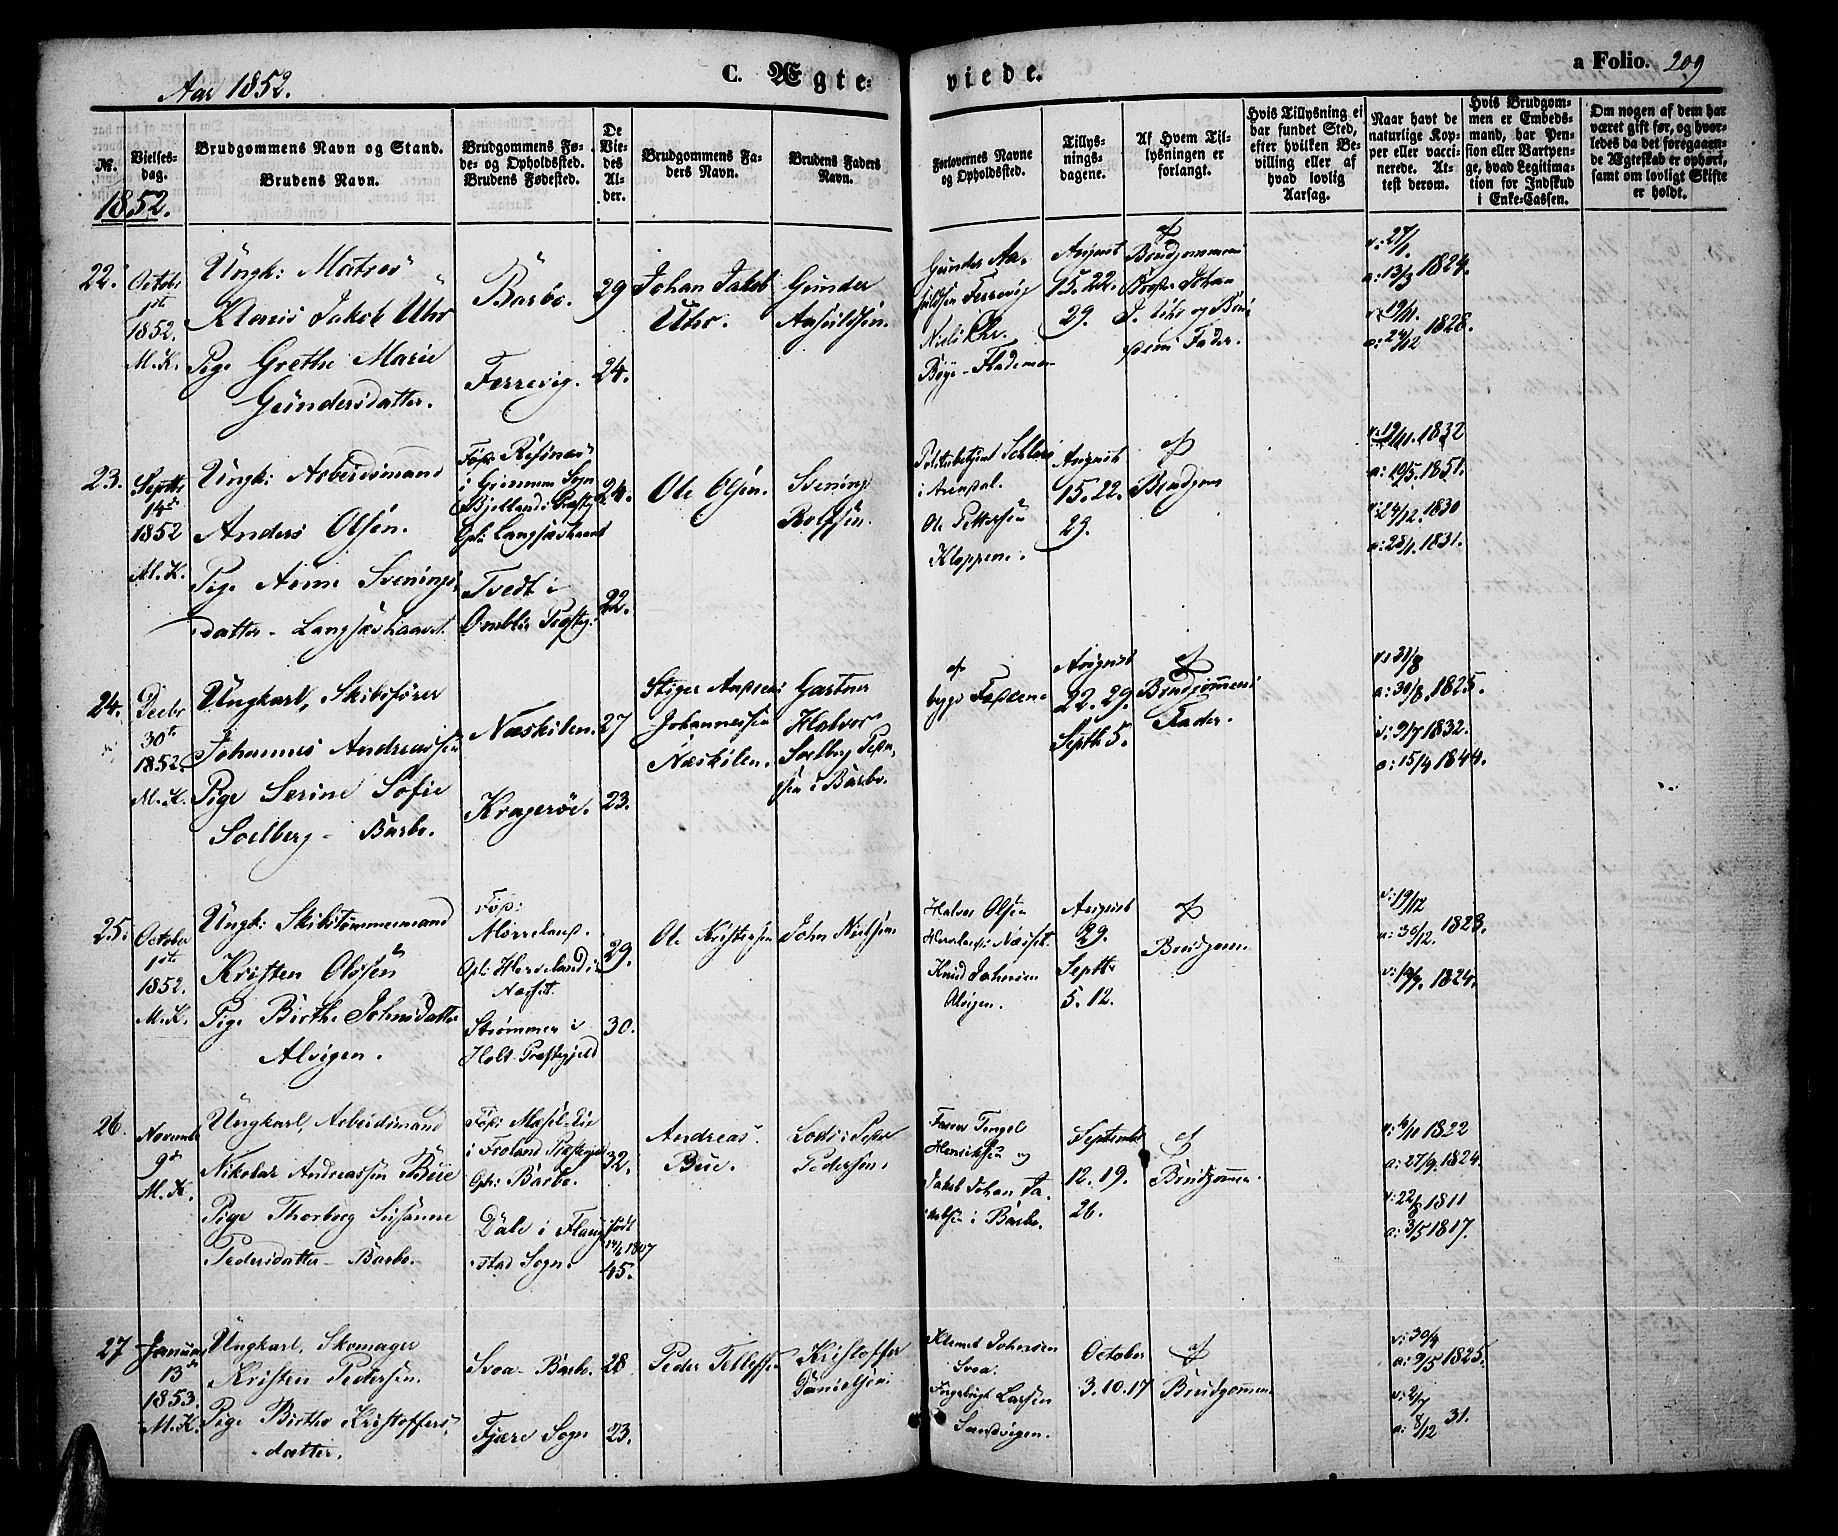 Aar 1852.
C. Ægte-
viede.
a Folio. 209
№.
Vielses-
dag.
Brudgommens Navn og Stand.
Brudens Navn.
Brudgommens Fø-
de- og Opholdssted.
Brudens Fødested.
De
Vie-
des
Al-
der.
Brudgommens Fa-
ders Navn.
Brudens Faders
Navn.
Forlovernes Navne
og Opholdssted.
Tillys-
nings-
dagene.
Af Hvem Til-
lysningen er
forlangt.
Hvis Tillysning ei
har fundet Sted,
efter hvilken Be-
villing eller af
hvad lovlig
Aarsag.
Naar havt de
naturlige Kop-
per eller vacci-
nerede. At-
test derom.
Hvis Brudgom-
men er Embeds-
mand, har Pen-
sion eller Vartpen-
ge, hvad Legitima-
tion for Indskud
i Enke-Cassen.
Om nogen af dem har
været gift før, og hvor-
ledes da det foregaaen-
de Ægteskab er ophørt,
samt om lovligt Skifte
er holdt.
1852.
22.
Octobr
1ste
1852.
M.K.
Ungk: Matres
Klaus Jakob Uhr
Pige Grethe Marie
Gundersdatter.
Barbo.
Færrevig.
29
24.
Johan Jakob
Uhr.
Gunder
Aasuldsen.
Gunder Aa-
suldsen Færrevig
Niels Chr.
Bøye - Flademoen
August
15. 22.
29.
af
Brudgommens
Johan
J. Uhr og Bru-
dens Fader.
v: 27/1
a: 13/3 1824.
v: 19/11
a: 24/12 1828.
23.
Septbr
14de
1852
M.K.
Ungk: Arbeidsmand
Anders Olsen.
Pige Anne Svenings-
datter - Langsæehaavet.
Fød:
i Grinnum Sogn
Bjellands Præstgj
Oph: Langsæehaavet
Tvedt i
Omblie Præstgj:
24.
22.
Ole Olsen.
Svening
Rolfsen.
i Arendal.
Ole Pettersen
Kloppene.
August
15. 22.
29.
af
Brudgom
v: 19/11 1832
a: 19/5 1851.
v: 24/12. 1830
a: 28/1. 1831.
24.
Decbr
30te
1852.
M.K.
Ungkarl, Skibsfører
Johannes Andreassen
Pige Serine Sofie
Soelberg - Barbo.
Næskilen.
Kragerøe.
27
23.
Stiger Andreas
Johannessen
Næskilen.
Gartner
Halvor
Soelberg Peder-
sen i Barbo.
af
begge Fædrene
August
22. 29.
Septbr 5.
af
Brudgommens
Fader.
v: 31/8
a: 30/8. 1825.
v: 9/7 1832.
a: 15/4 1844.
25.
October
1ste
1852.
M.K.
Ungk: Skibstømmermand
Kristen Olssen
Pige Birthe Johnsdatter
Alvigen.
Fød:
Morreland.
Oph: Herveland i
Næset.
Strømmen i
Holt Præstegjeld
29.
30.
Ole Kristensen
John Nielsen
Halvor Olsen
Herveland i Næset.
Knud Johnsen
Alvigen.
August
29.
Septbr
5. 12.
af
Brudgommen
v: 19/12
a: 30/12. 1828.
v: 19/7. 1824.
26.
Novembr
9de
M.K.
Ungkarl, Arbeidsmand
Nikolai Andreassen Bue
Pige Thorborg Susanne
Pedersdatter - Barbo.
Fød:
i Froland Præstegjeld
Oph: Barbo.
Dale i Flang-
stad Sogn.
32.
født
14/6 1807
45.
Andreas
Bue.
Lods: Peder
Pedersen.
Tengel
Henriksen og
Jakob Johan Ja-
kobsen i Barbo.
September
12. 19.
26.
af
Brudgommen.
v: 6/11 1822
a: 27/9. 1824.
v: 22/8 1811
a: 3/5 1817.
27
Januar
13de
1853.
M.K.
Ungkarl, Skomager
Kristen Pedersen.
Pige Birthe Kristoffers-
datter.
Svoa - Barbo.
Fjære Sogn
28
23.
Peder Tellefsen
Kristoffer
Danielsen.
Klemet Johnsen
Svoa.
Ingebrigt Larsen
Sandvigen.
October
3. 10. 17
af
Brudgommen
v: 30/4
a: 9/5 1825.
v: 2/7
a: 8/12 31.